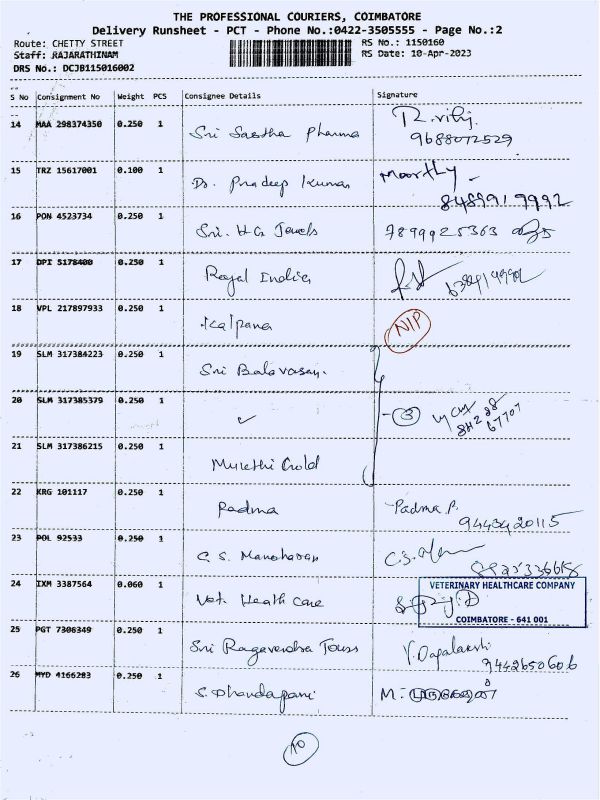 THE PROFESSIONAL COURIERS, COIMBATORE
Delivery Runsheet - PCT - Phone No.:0422-3505555 - Page No.:2
Route: CHETTY STREET RS No.: 1150160
Staff: RAJARATHINAM RS Date: 10-Apr-2023
DRS No.: DCJB115016002
S No Consignment No Weight PCS Consignee Details Signature
14 MAA 298374350 0.250 1 Sri Sastha Pharma
9688072529
15 TRZ 15617001 0.100 1 Dr. Pradeep Kumar Moorthy
8489919992
16 PON 4523734 0.250 1 Sri. HG Jewels 7899925363
17 DPI 5178400 0.250 1 Royal India
18 VPL 217897933 0.250 1 Kalpana NIP
19 SLM 317384223 0.250 1 Sri Balavasan.
20 SLM 317385379 0.250 1 3
21 SLM 317386215 0.250 1 Gold
22 KRG 101117 0.250 1 Padma Padma P.
9443420115
23 POL 92533 0.250 1 C. S. Manoharan C.S.
24 IXM 3387564 0.060 1 Vet. Heath Care
VETERINARY HEALTHCARE COMPANY
COIMBATORE - 641 001
25 PGT 7306349 0.250 1 Sri Ragavendra Tours
9442650606
26 MYD 4166283 0.250 1 S. Dhandapani M.
10